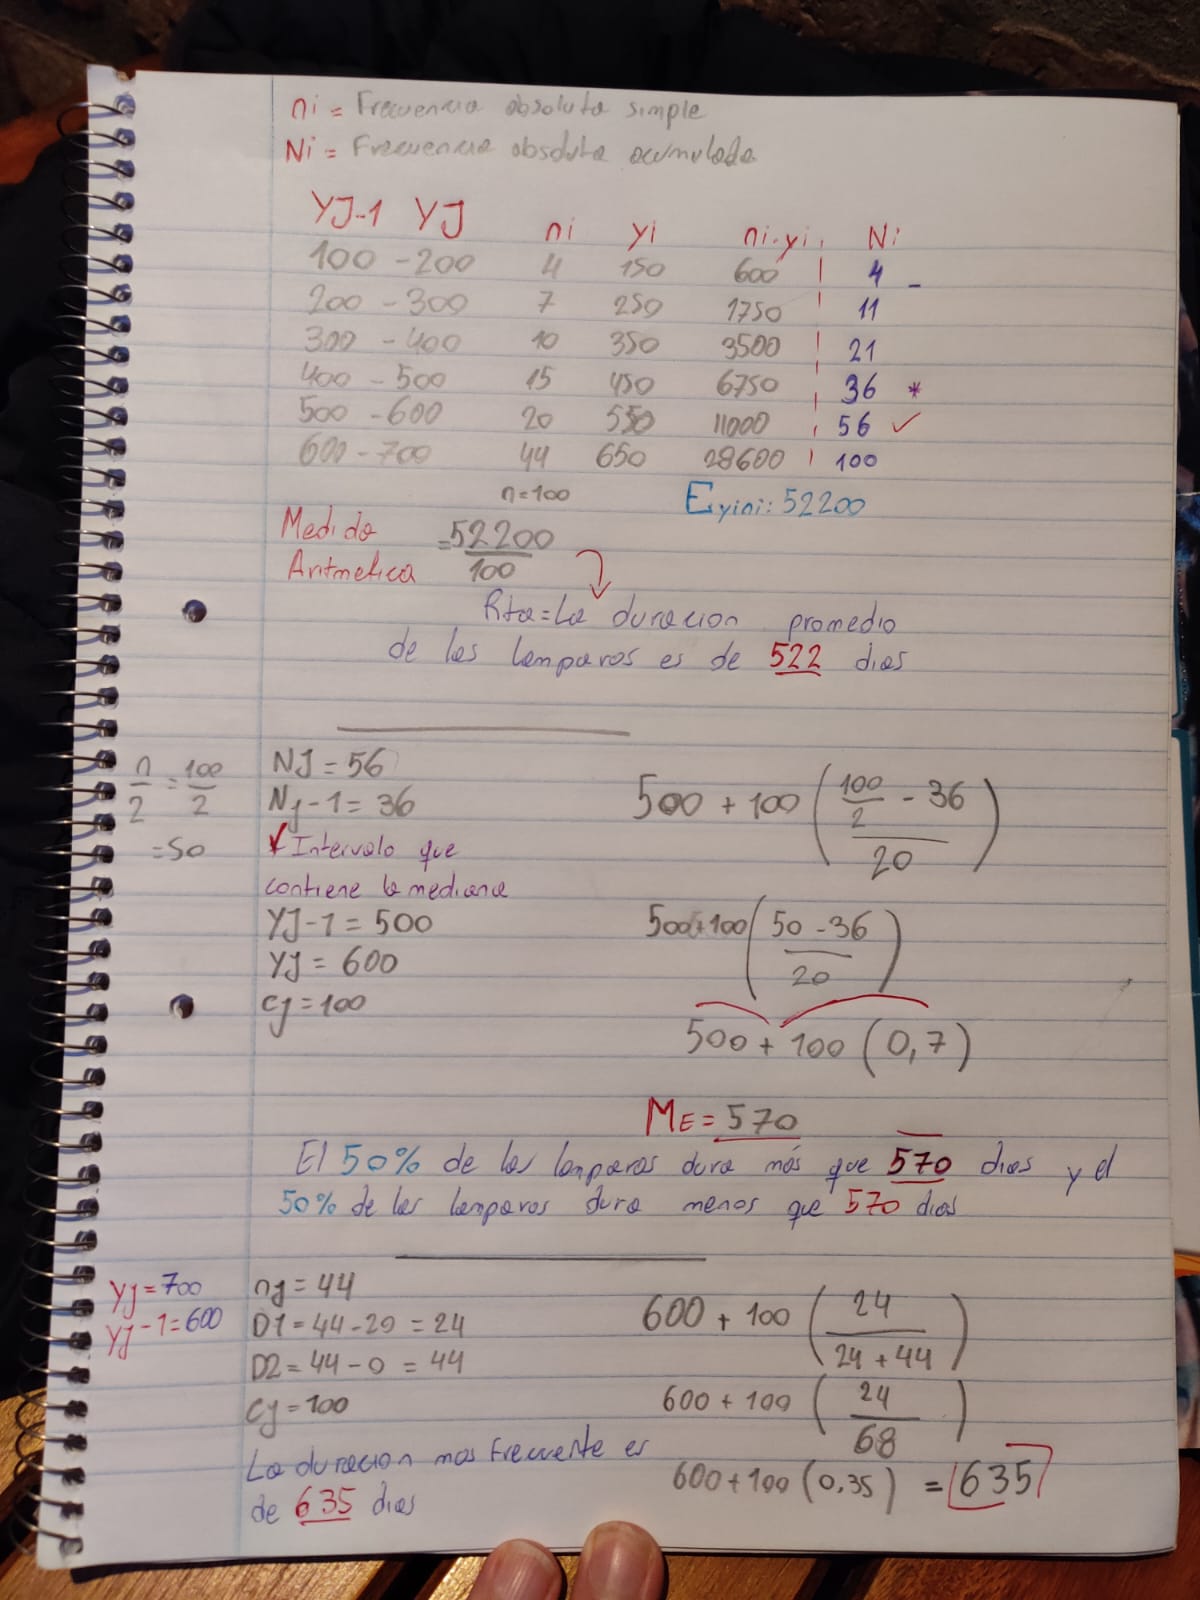 ni = Frecuencia absoluta simple
Ni = Frecuencia absoluta acumulada
YJ-1 YJ ni yi ni.yi Ni
100 - 200 4 150 600 4 -
200 - 300 7 250 1750 11
300 - 400 10 350 3500 21
400 - 500 15 450 6750 36 *
500 - 600 20 550 11000 56 ✓
600 - 700 44 650 28600 100
n=100 Eyini: 52200
Medida Aritmetica = 52200/100
Rta=La duracion promedio
de las lamparas es de 522 dias
n/2 = 100/2
= 50
NJ = 56
Nj-1 = 36
✓ Intervalo que
contiene la mediana
YJ-1 = 500
YJ = 600
cj = 100
500 + 100 ( (100/2 - 36)/20 )
500+100 ( (50 - 36)/20 )
500 + 100 (0,7)
ME = 570
El 50% de las lamparas dura más que 570 dias y el
50% de las lamparas dura menos que 570 dias
yj = 700
yj-1 = 600
nj = 44
D1 = 44-20 = 24
D2 = 44-0 = 44
cj = 100
La duracion mas frecuente es
de 635 dias
600 + 100 ( 24/(24 + 44) )
600 + 100 ( 24/68 )
600+100 (0,35) = 635